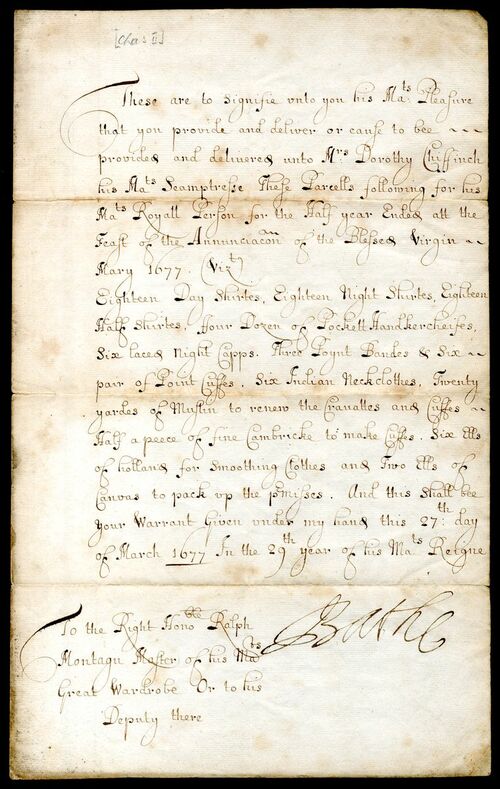 [Chas II]
These are to Signifie vnto you his Mats Pleasure
that you provide and deliver or cause to bee
provided and delivered unto Mrs Dorothy Chiffinch
his Mats Seamptresse These Parcells following for his
Mats Royall Person for the Half year Ended att the
Feast of the Annunciacon of the Blessed Virgin
Mary 1677. (Vizty
Eighteen Day Shirtes, Eighteen Night Shirtes, Eighteen
Half Shirtes, Four Dozen of Pockett Handkercheifes,
Six laced Night Capps. Three Poynt Bandes & Six
pair of Point Cuffes. Six Indian Neckclothes, Twenty
yardes of Muslin to renew the Cravattes and Cuffes
Half a peece of fine Cambricke to make Cuffes. Six Ells
of holland for Smoothing Clothes and Two Ells of
Canvas to pack vp the pmisses. And this Shall bee
your Warrant Given under my hand this 27:th day
of March 1677 In the 29th year of his Mats Reigne
To the Right Honoble Ralph
Montagu Master of his Mats
Great Wardrobe Or to his
Deputy there
Bathe